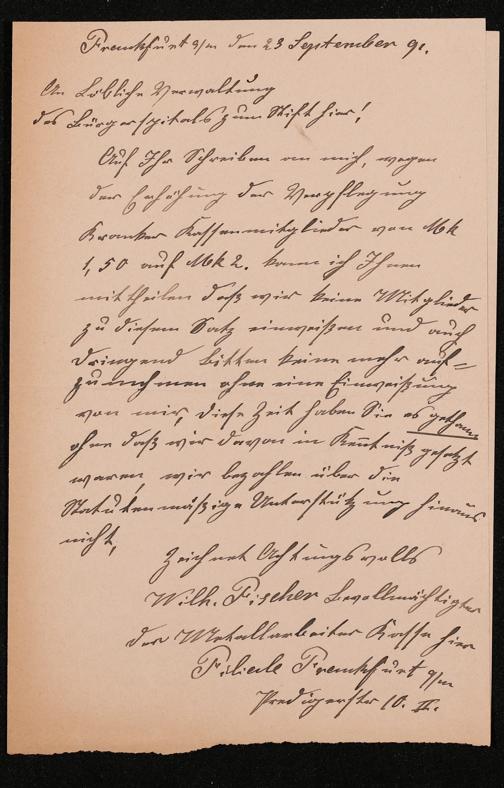 Frankfurt a/m den 23 September 91.
An Löbliche Verwaltung
des Bürgerspitals zum Stift hier!
Auf Ihr Schreiben an mich, wegen
der Erhöhung der Verpflegung
Kranker Kassenmitglieder von Mk
1,50 auf Mk 2. kann ich Ihnen
mittheilen daß wir keine Mitglieder
zu diesem Satz einweißen und auch
dringend bitten keine mehr auf-
zunehmen ohne eine Einweißung
von mir, diese Zeit haben Sie es gethan
ohne daß wir davon in Kentniß gesetzt
waren, wir bezahlen über die
Statutenmäßige Unterstützung hinaus
nicht,
Zeichnet Achtungsvolls
Wilh. Fischer Bevollmächtigter
der Metallarbeiter Kasse hier
Filiale Frankfurt a/m
Predigerstr 10. II.